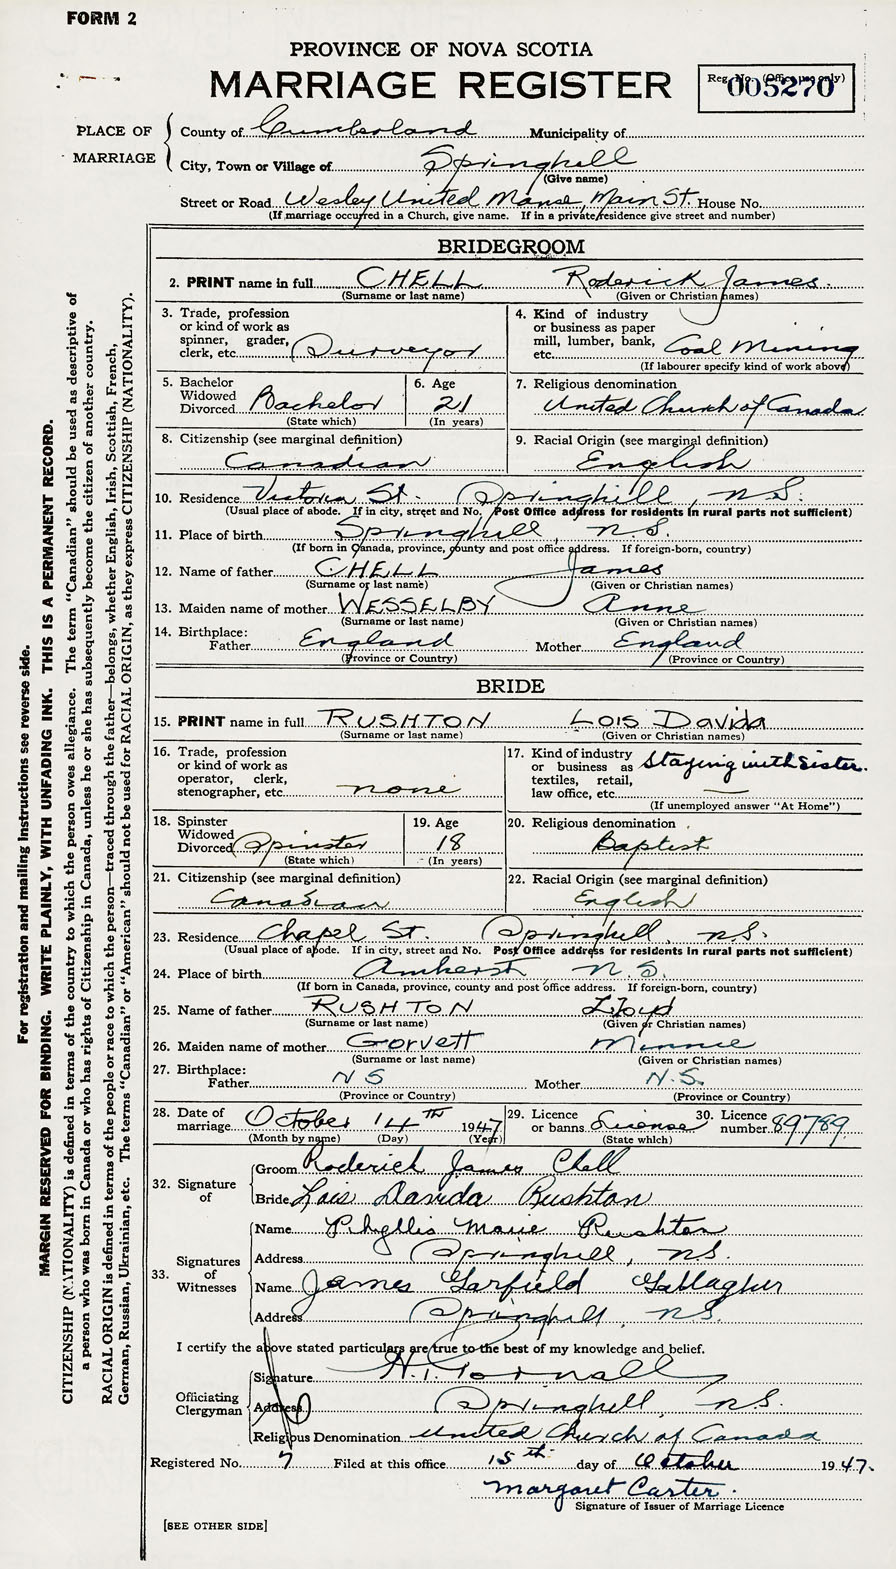 FORM 2
PROVINCE OF NOVA SCOTIA
MARRIAGE REGISTER
Reg. No. (Office use only)
005270
PLACE OF MARRIAGE
County of Cumberland Municipality of
City, Town or Village of Springhill
(Give name)
Street or Road Wesley United Manse, Main St. House No.
(If marriage occurred in a Church, give name. If in a private residence give street and number)
BRIDEGROOM
2. PRINT name in full CHELL Roderick James.
(Surname or last name) (Given or Christian names)
3. Trade, profession
or kind of work as
spinner, grader,
clerk, etc. Surveyor
4. Kind of industry
or business as paper
mill, lumber, bank,
etc. Coal Mining
(If labourer specify kind of work above)
5. Bachelor
Widowed
Divorced Bachelor
(State which)
6. Age
21
(In years)
7. Religious denomination
United Church of Canada
8. Citizenship (see marginal definition)
Canadian
9. Racial Origin (see marginal definition)
English
10. Residence Victoria St. Springhill, N.S.
(Usual place of abode. If in city, street and No. Post Office address for residents in rural parts not sufficient)
11. Place of birth Springhill, N.S.
(If born in Canada, province, county and post office address. If foreign-born, country)
12. Name of father CHELL James
(Surname or last name) (Given or Christian names)
13. Maiden name of mother WESSELBY Anne
(Surname or last name) (Given or Christian names)
14. Birthplace:
Father England Mother England
(Province or Country) (Province or Country)
BRIDE
15. PRINT name in full RUSHTON LOIS Davida
(Surname or last name) (Given or Christian names)
16. Trade, profession
or kind of work as
operator, clerk,
stenographer, etc. none
17. Kind of industry
or business as
textiles, retail,
law office, etc. Staying with Sister.
(If unemployed answer "At Home")
18. Spinster
Widowed
Divorced Spinster
(State which)
19. Age
18
(In years)
20. Religious denomination
Baptist
21. Citizenship (see marginal definition)
Canadian
22. Racial Origin (see marginal definition)
English
23. Residence Chapel St. Springhill, N.S.
(Usual place of abode. If in city, street and No. Post Office address for residents in rural parts not sufficient)
24. Place of birth Amherst, N.S.
(If born in Canada, province, county and post office address. If foreign-born, country)
25. Name of father RUSHTON Lloyd
(Surname or last name) (Given or Christian names)
26. Maiden name of mother Gorvett Minnie
(Surname or last name) (Given or Christian names)
27. Birthplace:
Father NS Mother N.S.
(Province or Country) (Province or Country)
28. Date of
marriage October 14th 1947
(Month by name) (Day) (Year)
29. Licence
or banns License
(State which)
30. Licence
number 89789
32. Signature
of
Groom Roderick James Chell
Bride Lois Davida Rushton
33. Signatures
of
Witnesses
Name Phyllis Marie Rushton
Address Springhill, N.S.
Name James Garfield Gallagher
Address Springhill, N.S.
I certify the above stated particulars are true to the best of my knowledge and belief.
Officiating
Clergyman
Signature H.T.
Address Springhill, N.S.
Religious Denomination United Church of Canada
Registered No. 7 Filed at this office 15th day of October 1947.
Margaret Carter.
Signature of Issuer of Marriage Licence
[SEE OTHER SIDE]
For registration and mailing instructions see reverse side.
MARGIN RESERVED FOR BINDING. WRITE PLAINLY, WITH UNFADING INK. THIS IS A PERMANENT RECORD.
CITIZENSHIP (NATIONALITY) is defined in terms of the country to which the person owes allegiance. The term "Canadian" should be used as descriptive of
a person who was born in Canada or who has rights of Citizenship in Canada, unless he or she has subsequently become the citizen of another country.
RACIAL ORIGIN is defined in terms of the people or race to which the person—traced through the father—belongs, whether English, Irish, Scottish, French,
German, Russian, Ukrainian, etc. The terms "Canadian" or "American" should not be used for RACIAL ORIGIN, as they express CITIZENSHIP (NATIONALITY).